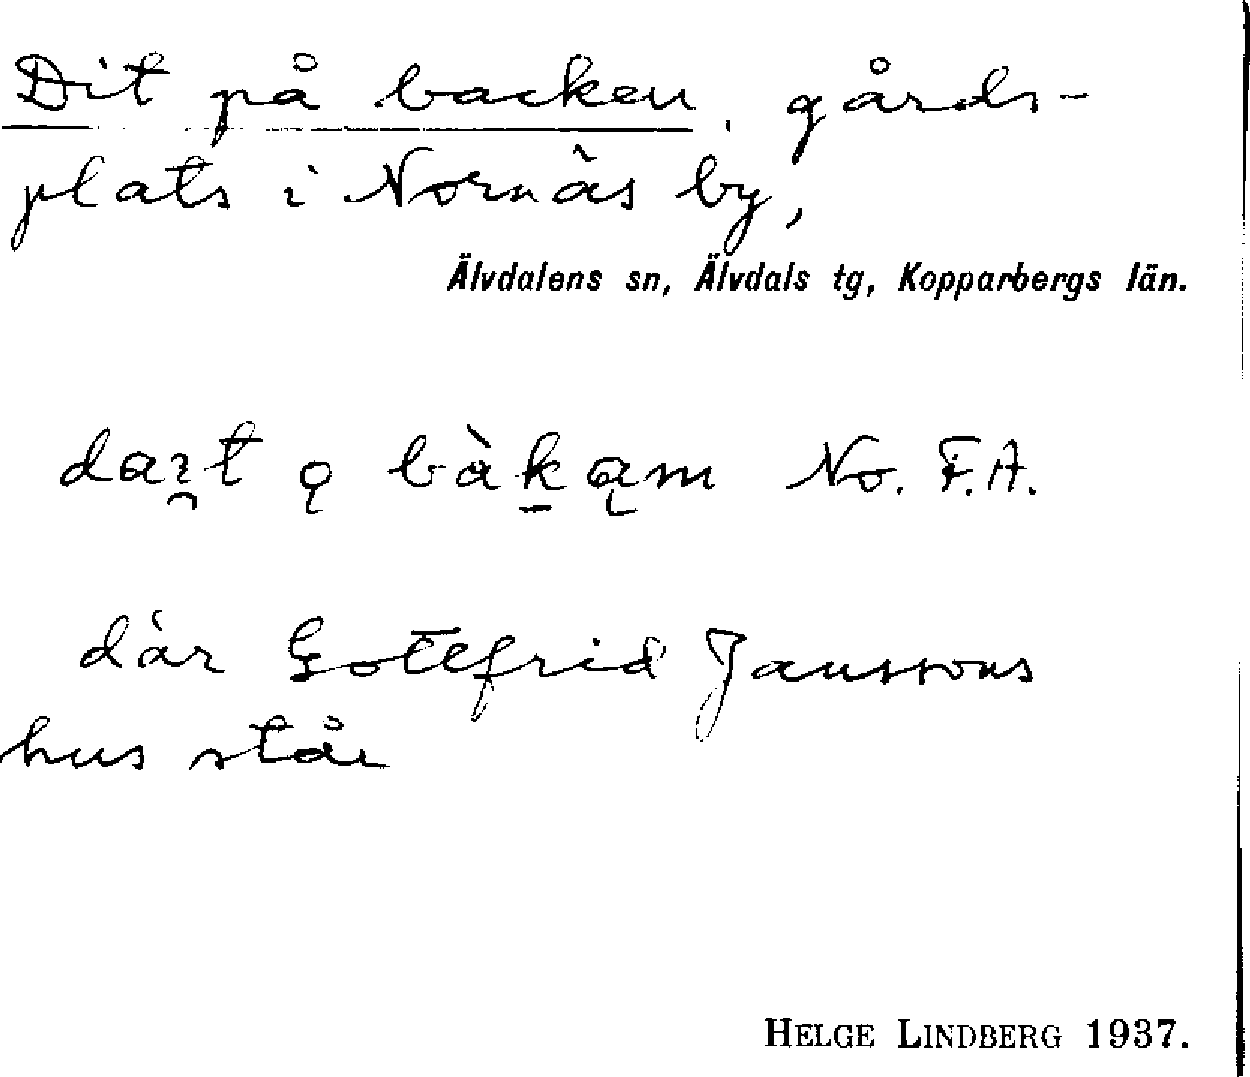 Dit på backen, gårds-
plats i Nornäs by,
Älvdalens sn, Älvdals tg, Kopparbergs län.
dai̯t ǫ bàk̠ąm No. F.A.
där Gottfrid Janssons
hus står
HELGE LINDBERG 1937.